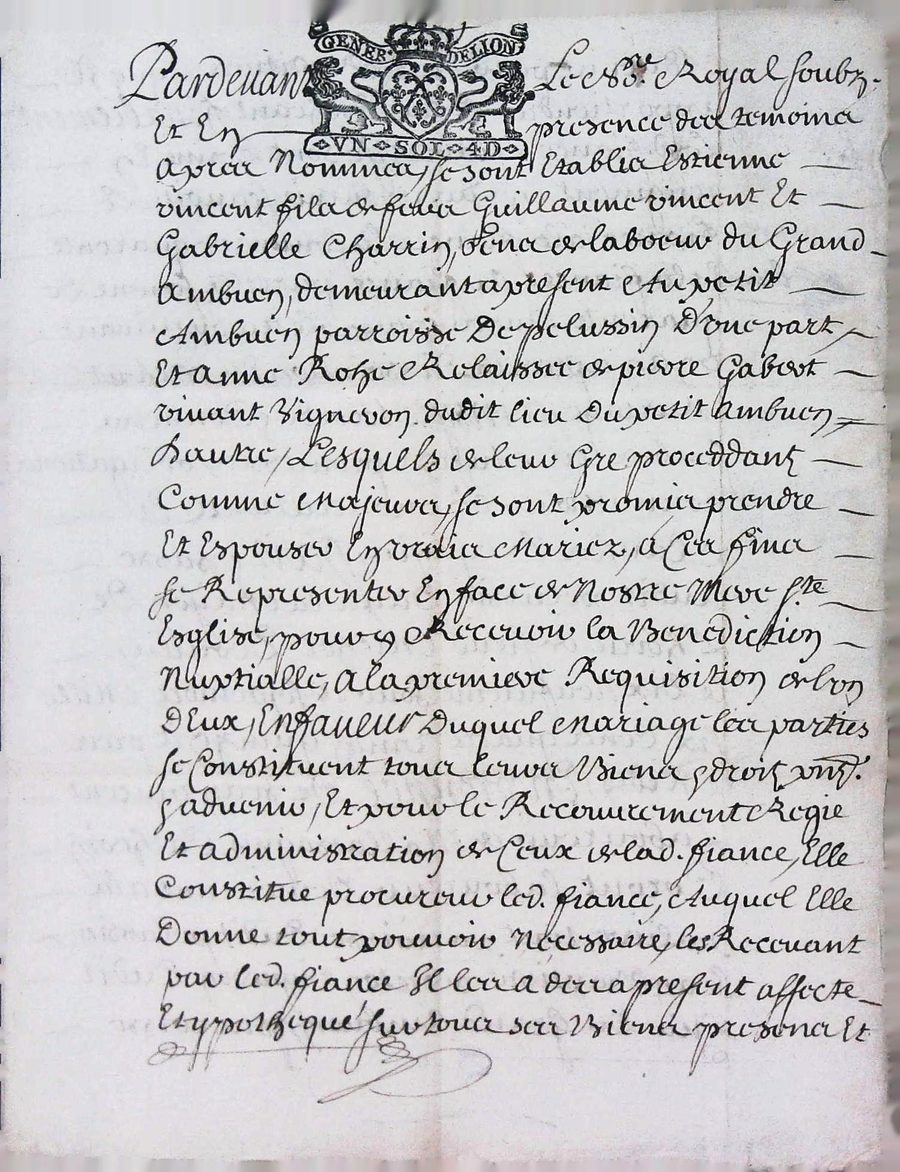 GENER DELION
VN SOL 4D
Pardevant Le No.re Royal soubz.
Et En presence des temoins
apres Nommes, se sont Etablis Estienne
vincent fils de feus Guillaume vincent Et
Gabrielle Charrin, de laboeur du Grand
Ambuen, demeurant apresent Au petit
Ambuen parroisse De pelussin D'une part
Et anne Rohe Relaissee de pierre Gabert
vivant Vigneron dudit lieu Du petit ambuen
D'autre, Lesquels de leur Gre proceddant
Comme Majeurs, se sont promis prendre
Et Espouser En vrais Mariez, a Ces fins
se Representer En face de Nostre Mere Ste
Esglise, pour y Recevoir la Benediction
Nuptialle, A la premiere Requisition de l'un
D'Eux, En faveur Duquel Mariage les parties
se Constituent tous leurs Biens & droitz pntz.
& advenir, Et pour le Recouvrement Regie
Et administration de Ceux de lad. fiance, Elle
Constitue procureur led. fiance, Auquel Elle
Donne tout pouvoir Necessaire, les Recevant
par led. fiance Il les a des apresent affecte
Et ypotheque sur tous ses Biens presens Et